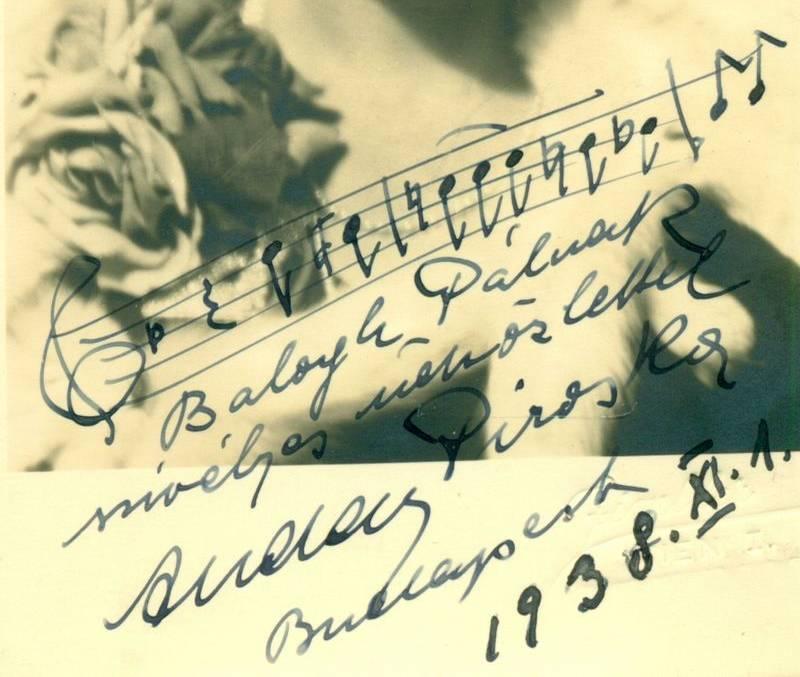 Balogh Pálnak
szívélyes üdvözlettel
Anday Piroska
Budapest
1938. XI. 1.